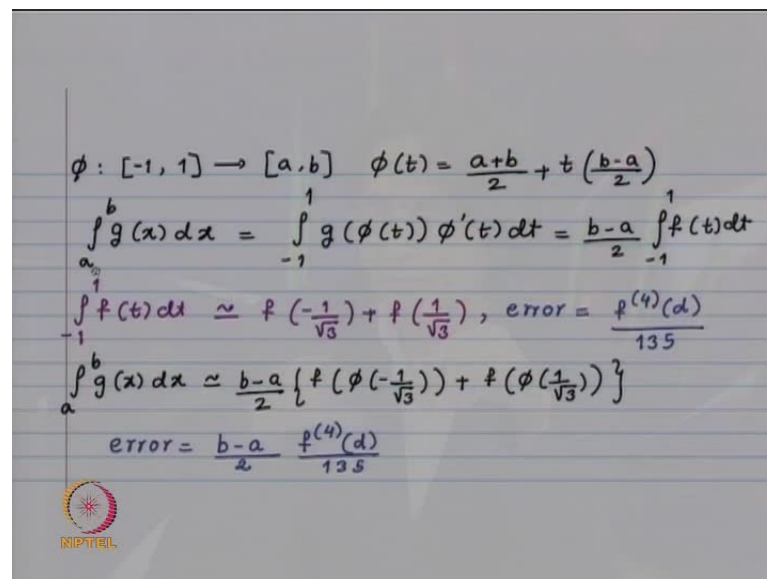 φ : [-1, 1] → [a, b]   φ(t) = (a+b)/2 + t((b-a)/2)
∫_a^b g(x) dx = ∫_{-1}^1 g(φ(t)) φ'(t) dt = (b-a)/2 ∫_{-1}^1 f(t) dt
∫_{-1}^1 f(t) dt ≃ f(-1/√3) + f(1/√3), error = f^(4)(d)/135
∫_a^b g(x) dx ≃ (b-a)/2 {f(φ(-1/√3)) + f(φ(1/√3))}
error = (b-a)/2 f^(4)(d)/135
NPTEL